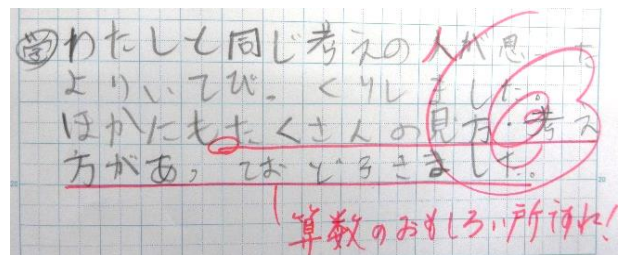 学 わたしと同じ考えの人が思った
よりいてびっくりしました。
ほかにもたくさんの見方・考え
方があっておどろきました。
算数のおもしろい所ですね!